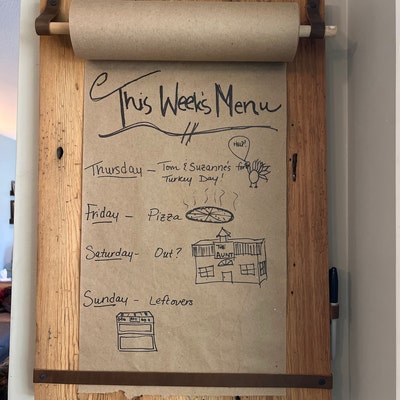 This Week's Menu
Help!
Thursday – Tom & Suzanne's for
Turkey Day!
Friday – Pizza
Saturday – Out?
THE
AUNT
Sunday – Leftovers